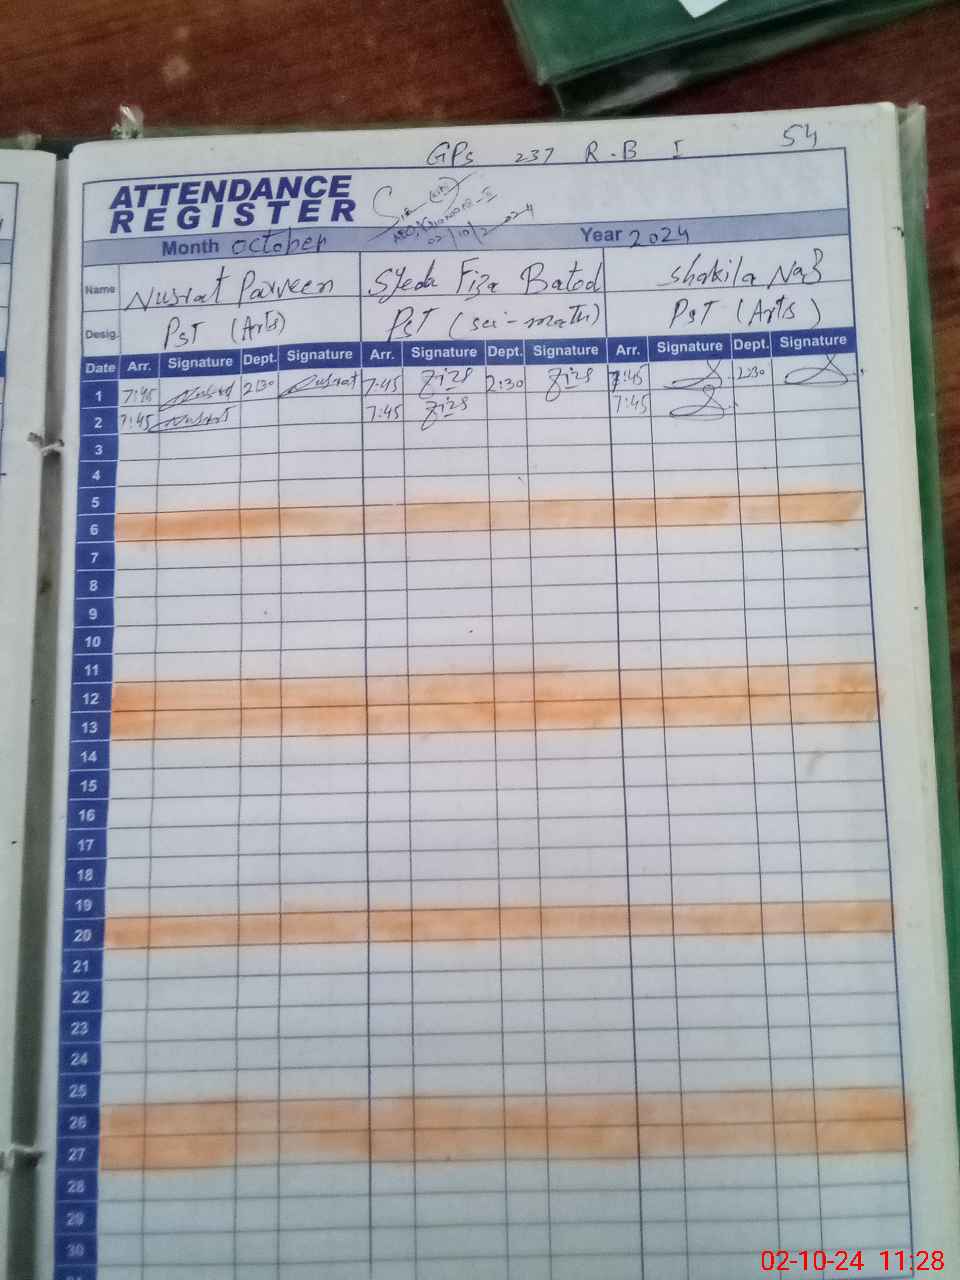 GPs 237 R.B I 54
ATTENDANCE
REGISTER
02/10/2024
Month October Year 2024
Name Nusrat Parveen Syeda Fiza Batool Shakila Naz
Desig. PST (Arts) PST (sci-math) PST (Arts)
Date Arr. Signature Dept. Signature Arr. Signature Dept. Signature Arr. Signature Dept. Signature
1 7:45 Nusrat 2:30 Nusrat 7:45 Fiza 2:30 Fiza 7:45 2:30
2 7:45 Nusrat 7:45 Fiza 7:45
3
4
5
6
7
8
9
10
11
12
13
14
15
16
17
18
19
20
21
22
23
24
25
26
27
28
29
30
02-10-24 11:28